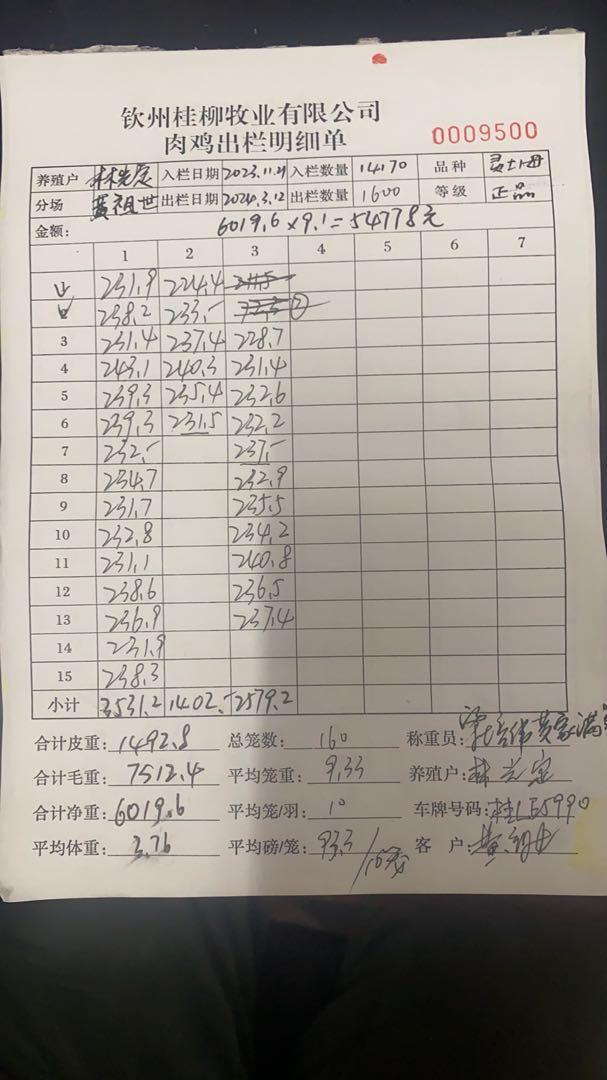 钦州桂柳牧业有限公司
肉鸡出栏明细单 0009500
养殖户 入栏日期 2023.11.21 入栏数量 14170 品种
分场 黄祖世 出栏日期 2024.3.12 出栏数量 1600 等级 正品
金额: 6019.6×9.1=54778元
1 2 3 4 5 6 7
1 231.9 224.4
2 238.2 233.- ②
3 231.4 237.4 228.7
4 243.1 240.3 231.4
5 239.3 235.4 232.6
6 239.3 231.5 232.2
7 232.- 237.-
8 234.7 232.9
9 231.7 235.5
10 232.8 234.2
11 231.1 240.8
12 238.6 236.5
13 236.9 237.4
14 231.9
15 238.3
小计 3531.2 1402.- 2579.2
合计皮重: 1492.8 总笼数: 160 称重员:
合计毛重: 7512.4 平均笼重: 9.33 养殖户:
合计净重: 6019.6 平均笼/羽: 10 车牌号码: 桂LE5990
平均体重: 3.76 平均磅/笼: 93.3 客户: